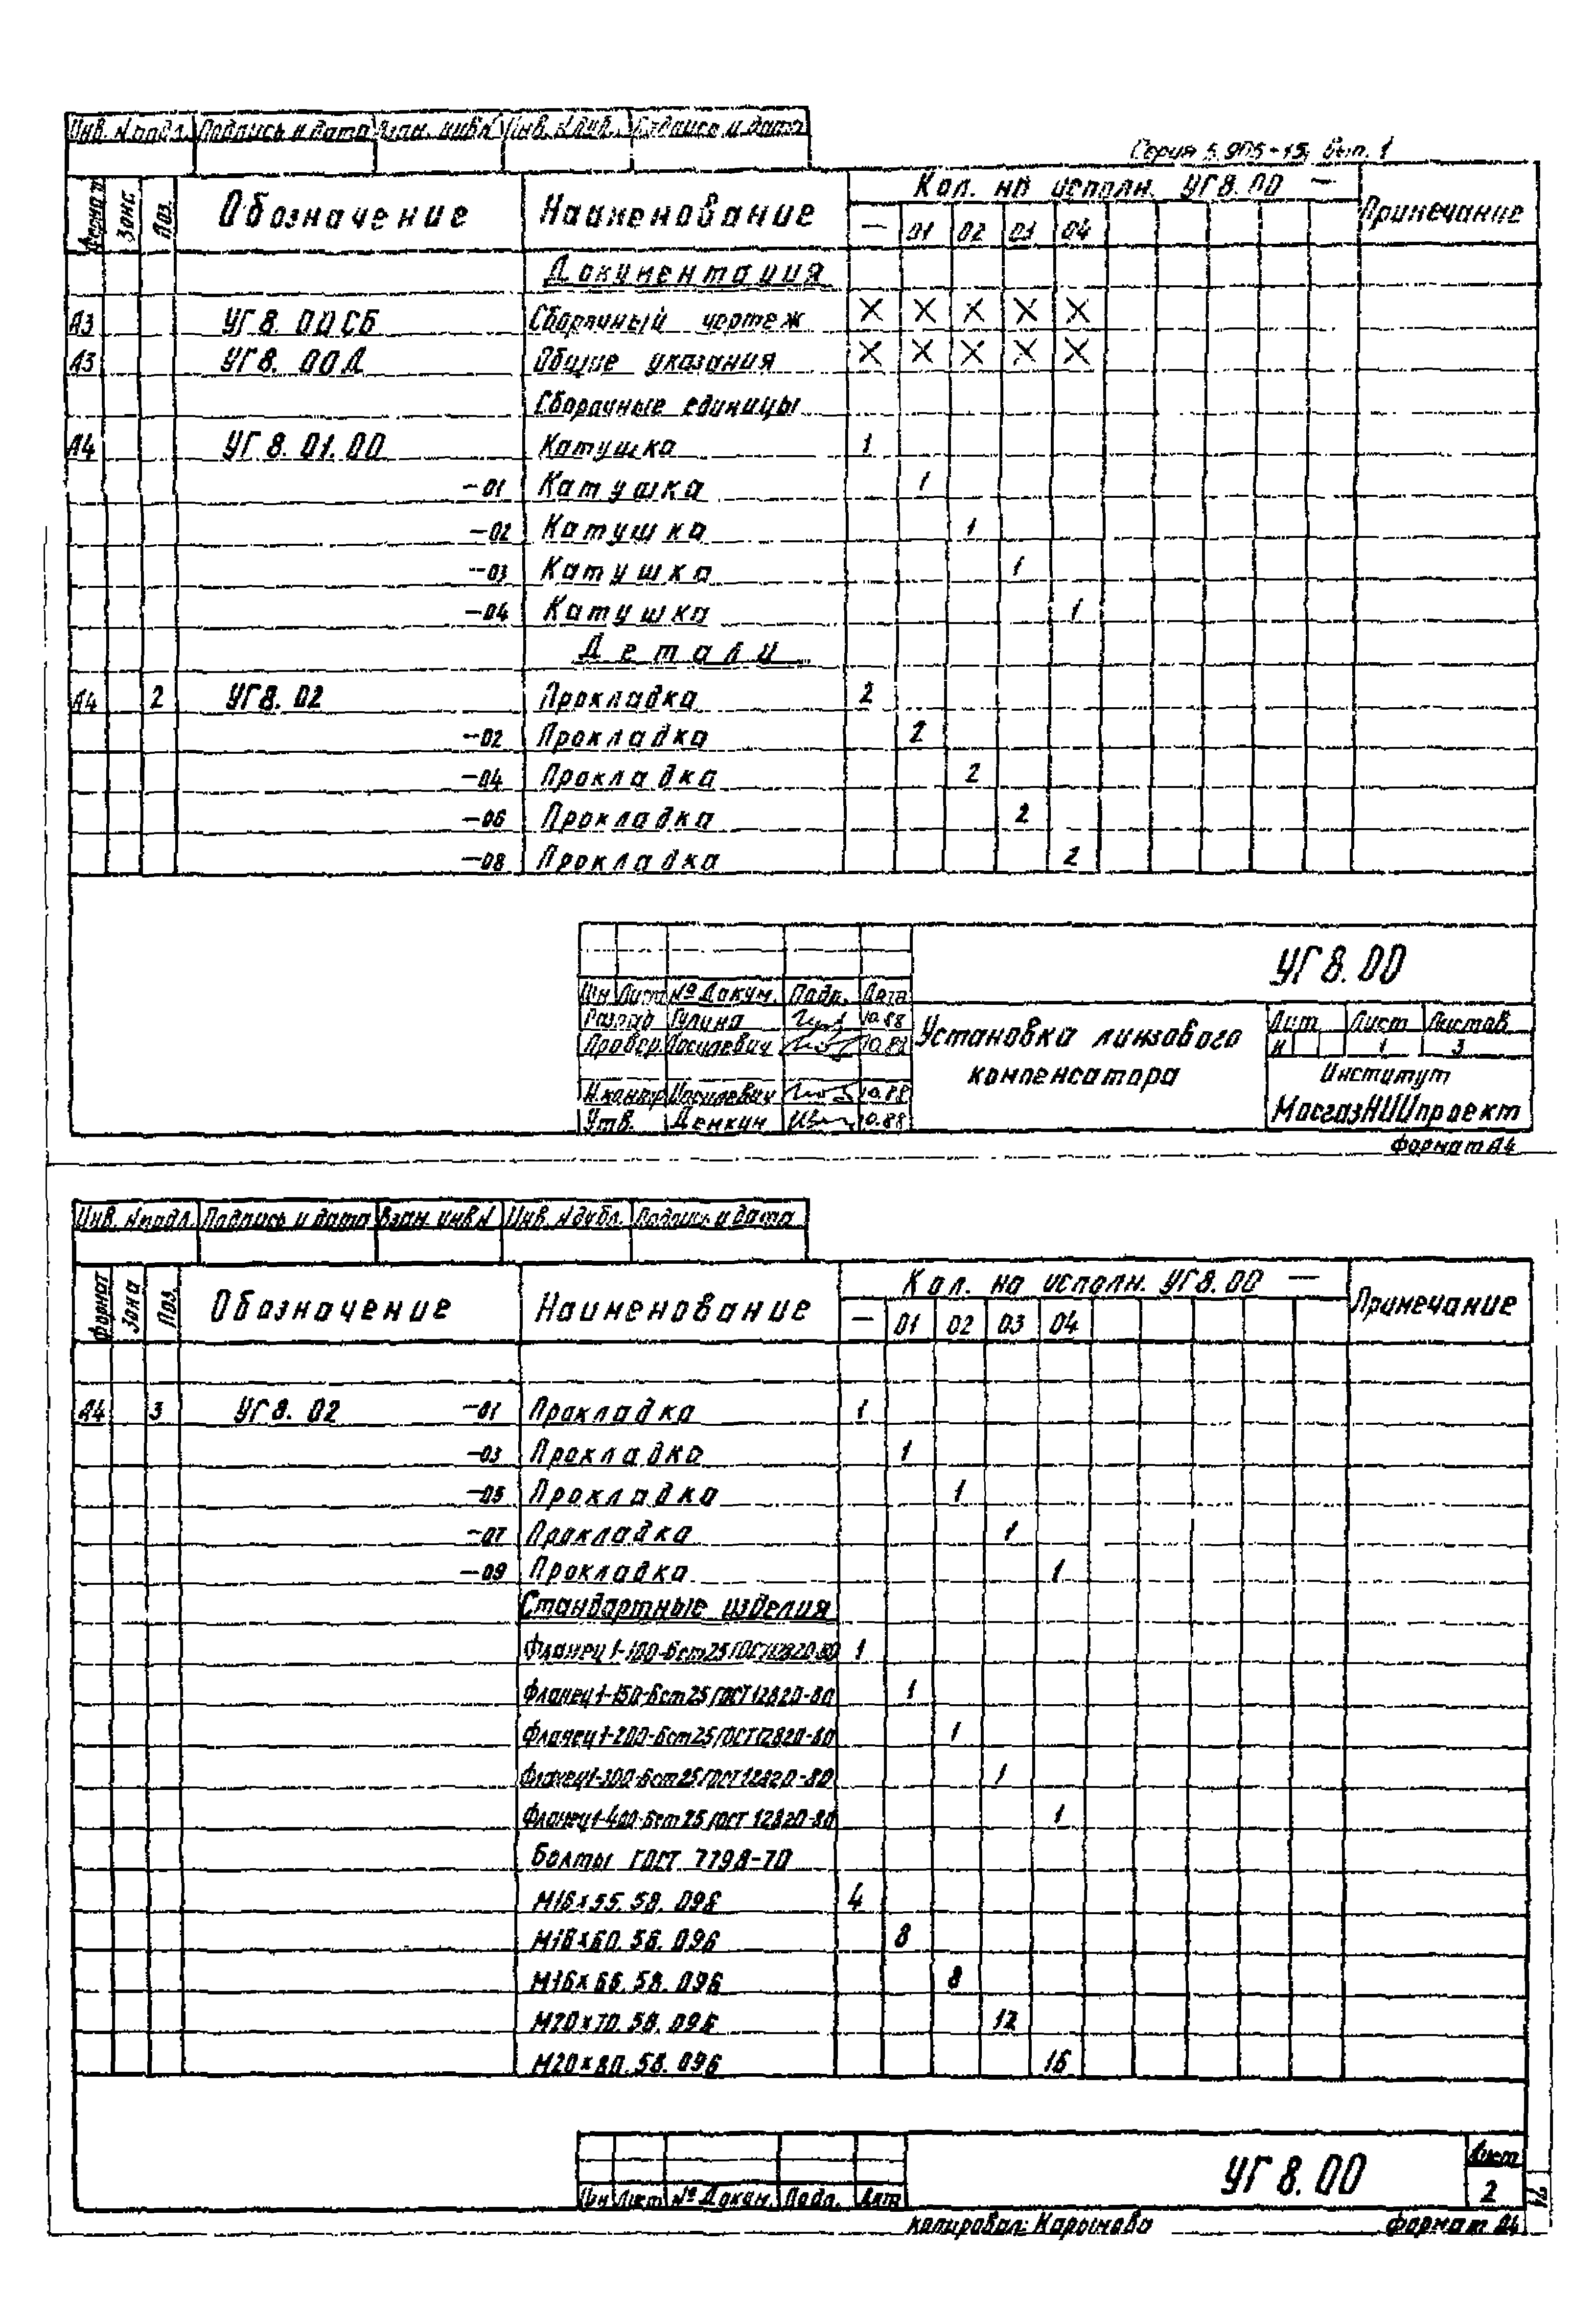 Инв. N подл. Подпись и дата Взам. инв N Инв. N дубл. Подпись и дата
Серия 5.905-15, Вып. 1
Формат Зона Поз. Обозначение Наименование Кол. на исполн. УГ8.00 — Примечание
— 01 02 03 04
Документация
А3 УГ8.00СБ Сборочный чертеж X X X X X
А3 УГ8.00Д Общие указания X X X X X
Сборочные единицы
А4 УГ8.01.00 Катушка 1
-01 Катушка 1
-02 Катушка 1
-03 Катушка 1
-04 Катушка 1
Детали
А4 2 УГ8.02 Прокладка 2
-02 Прокладка 2
-04 Прокладка 2
-06 Прокладка 2
-08 Прокладка 2
УГ8.00
Лист № Докум. Подп. Дата
Разраб Гулина 10.88
Провер. 10.88
Н.контр 10.88
Утв. Денкин 10.88
Установка линзового
компенсатора
Лит Лист Листов
И 1 3
Институт
МосгазНИИпроект
Формат А4
Инв. N подл. Подпись и дата Взам. инв N Инв. N дубл. Подпись и дата
Формат Зона Поз. Обозначение Наименование Кол. на исполн. УГ8.00 — Примечание
— 01 02 03 04
А4 3 УГ8.02 -01 Прокладка 1
-03 Прокладка 1
-05 Прокладка 1
-07 Прокладка 1
-09 Прокладка 1
Стандартные изделия
Фланец 1-100-6ст25 ГОСТ12820-80 1
Фланец 1-150-6ст25 ГОСТ12820-80 1
Фланец 1-200-6ст25 ГОСТ12820-80 1
Фланец 1-300-6ст25 ГОСТ12820-80 1
Фланец 1-400-6ст25 ГОСТ 12820-80 1
Болты ГОСТ 7798-70
М16х55.58.096 4
М16х60.58.096 8
М16х65.58.096 8
М20х70.58.096 12
М20х80.58.096 16
Лист № Докум. Подп. Дата
УГ8.00
Лист
2
копировал: Карымова
формат А4